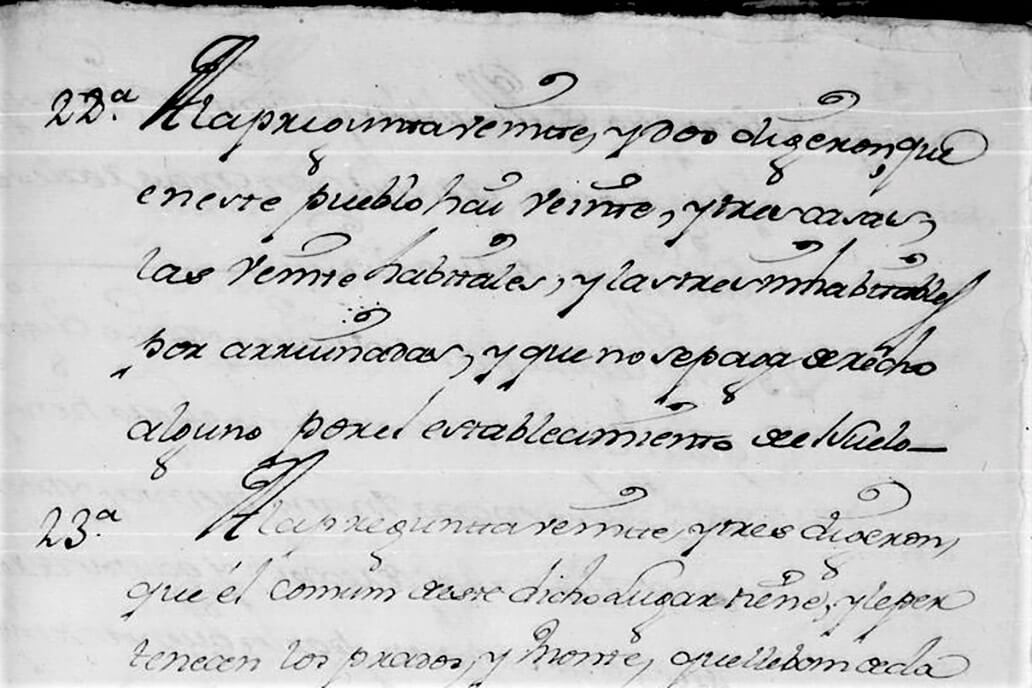 22.ª A la pregunta veinte, y dos digeron, que
en este pueblo hai veinte, y tres casas,
las veinte habitables, y las tres inhabitables
por arruinadas, y que no se paga derecho
alguno por el establecimiento de el suelo
23.ª A la pregunta veinte, y tres digeron,
que él comun deste dicho Lugar tiene, y le per
tenecen los prados, y Monte, que lleban